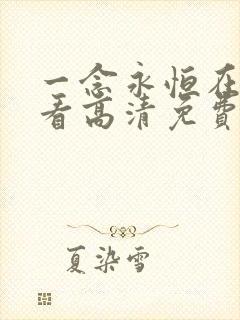 一念永恒在
看高清免费
夏染雪